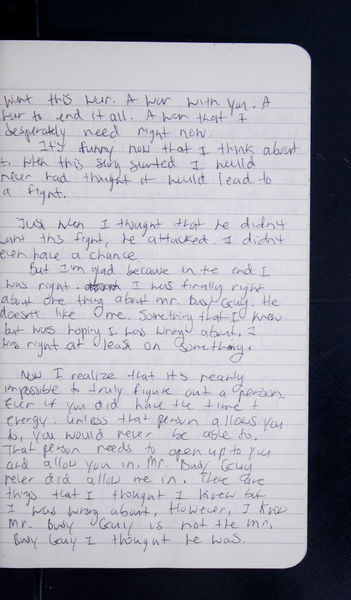 want this war. A war with you. A
war to end it all. A war that I
desperately need right now.
It's funny now that I think about
it. When this story started I would
never had thought it would lead to
a fight.
Just when I thought that he didn't
want this fight, he attacked. I didn't
even have a chance.
But I'm glad because in the end I
was right. I was finally right
about one thing about Mr. Busy Guy. He
doesn't like me. Something that I knew
but was hoping I was wrong about. I
was right at least on something.
Now I realize that it's nearly
impossible to truly figure out a person.
Even if you did have the time &
energy. Unless that person allows you
to, you would never be able to.
That person needs to open up to you
and allow you in. Mr. Busy Guy
never did allow me in. There are
things that I thought I knew but
I was wrong about. However, I know
Mr. Busy Guy is not the Mr.
Busy Guy I thought he was.